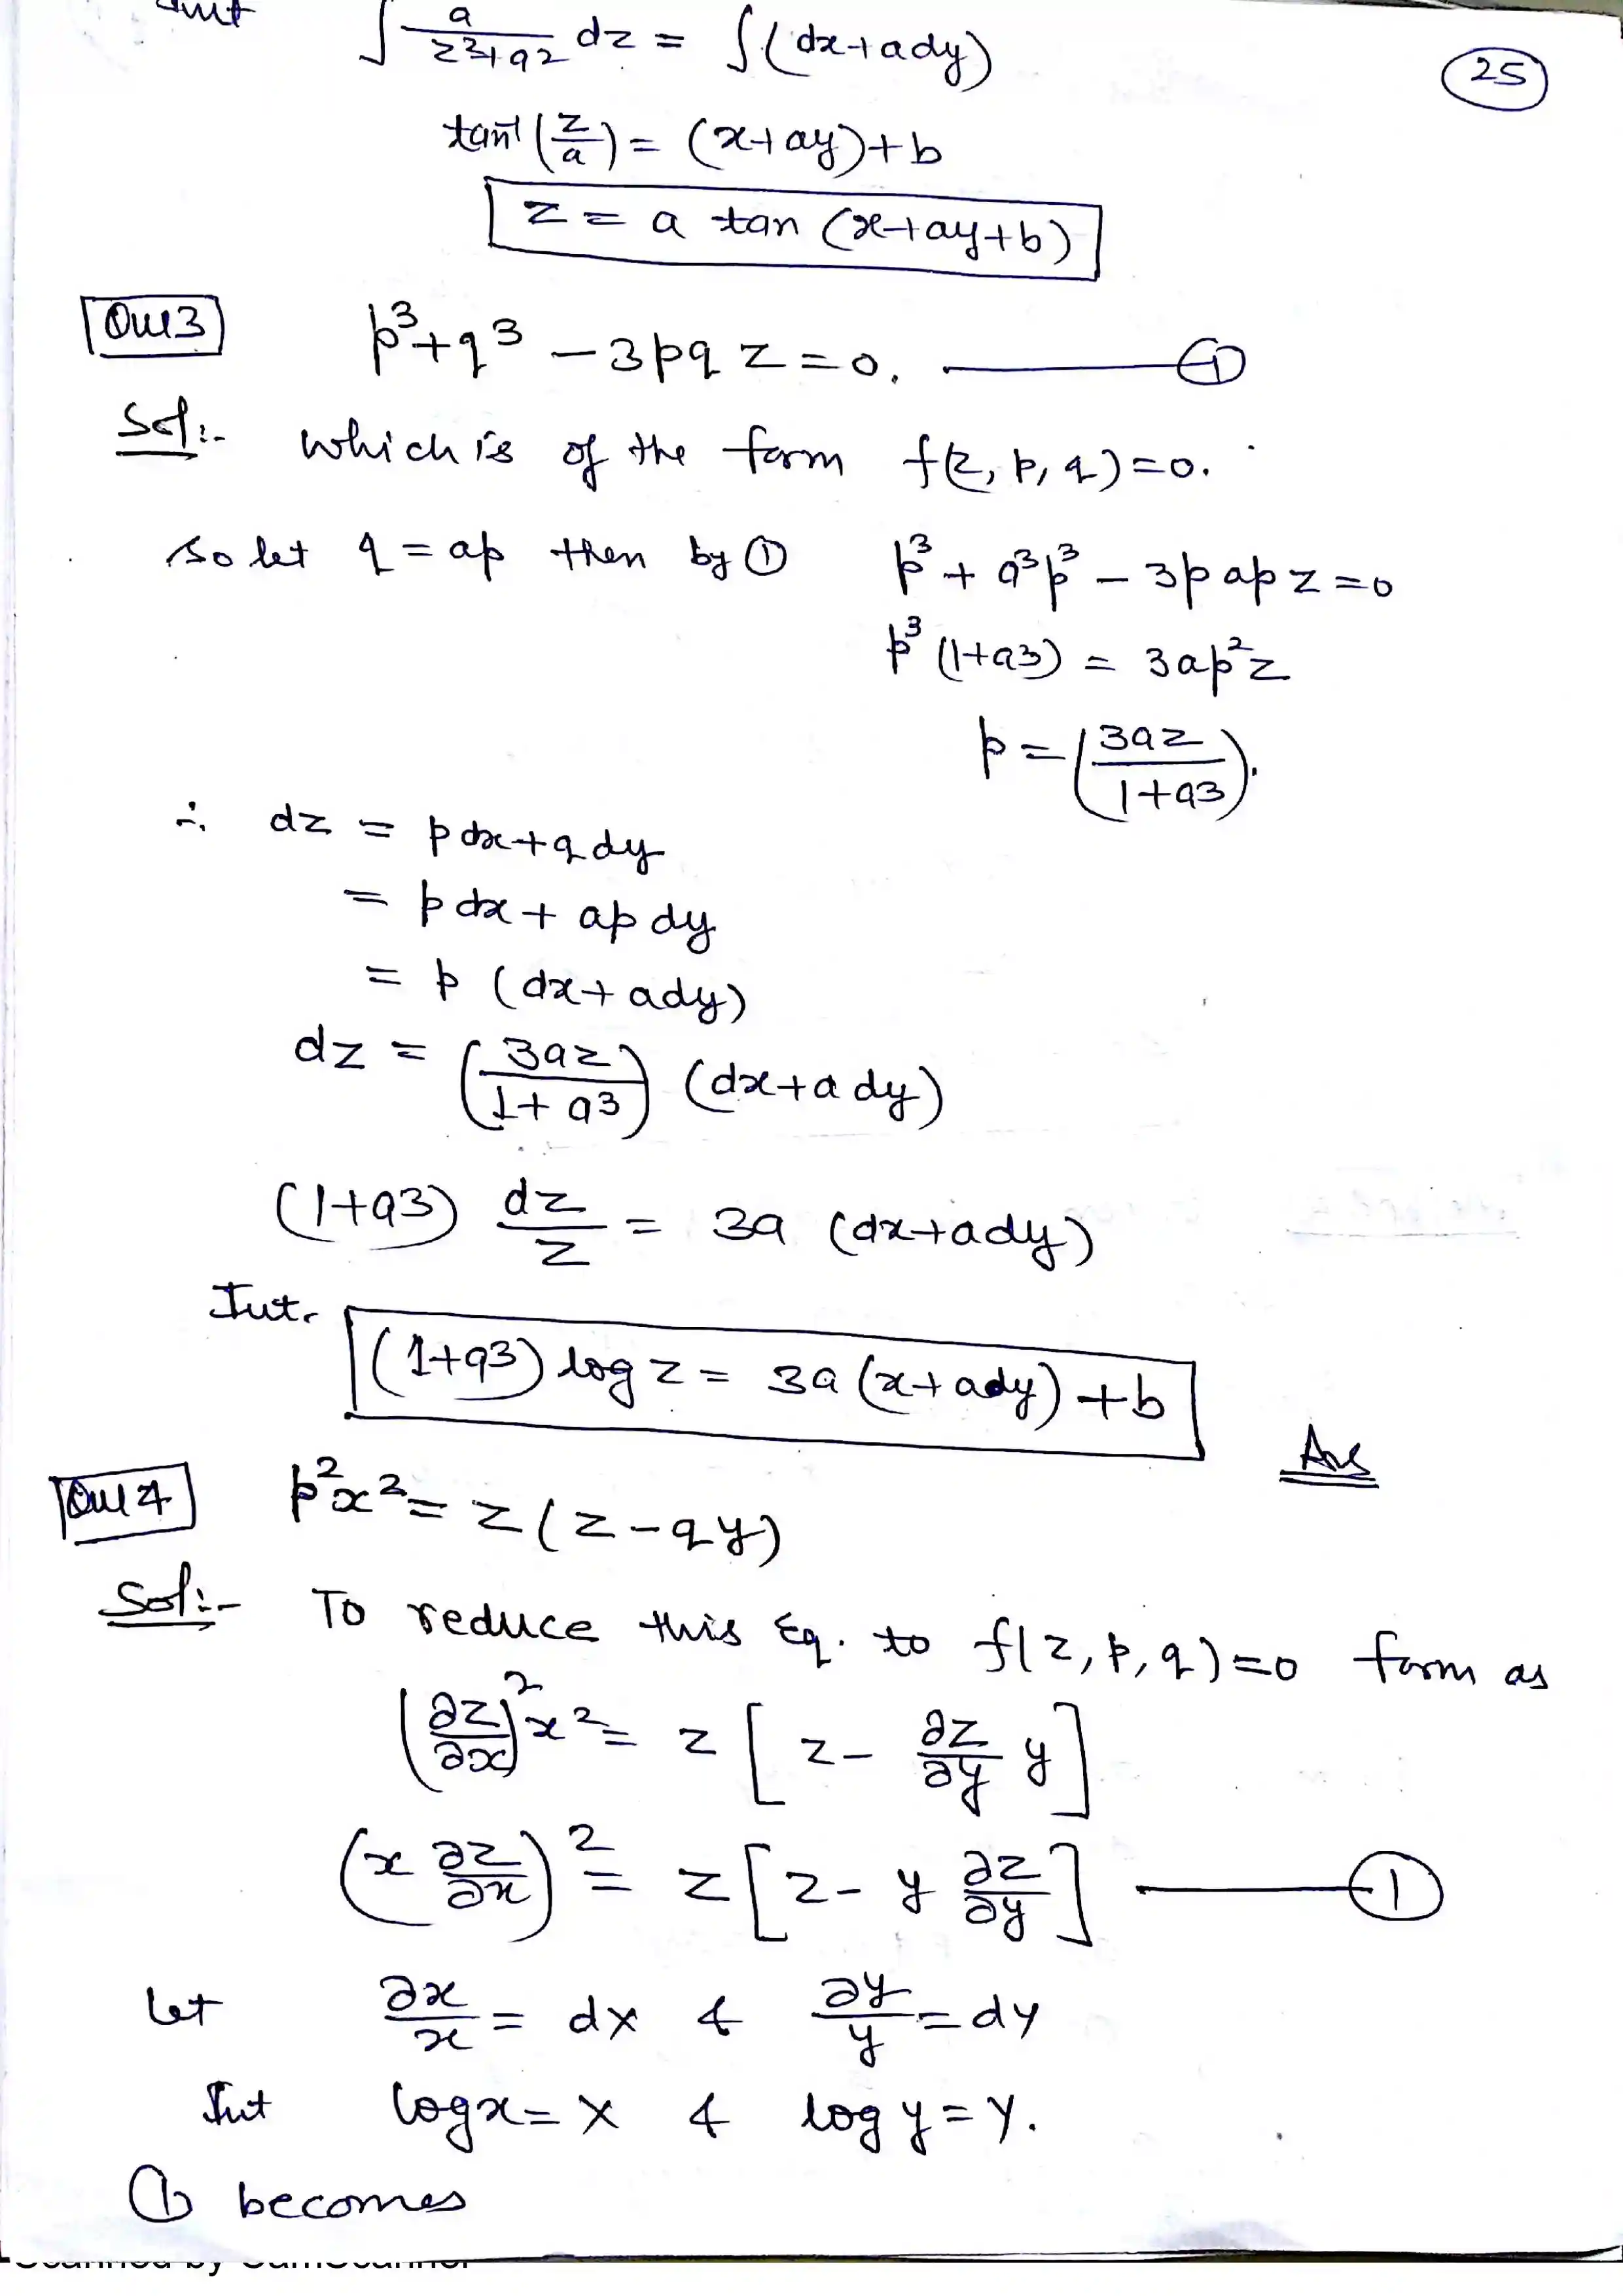 Int ∫ a/(z²+a²) dz = ∫(dx+ady)
25
tan⁻¹(z/a) = (x+ay)+b
z = a tan (x+ay+b)
Que 3 p³+q³ – 3pq z = 0. ——— ①
Sol:- which is of the form f(z, p, q)=0.
so let q = ap then by ① p³ + a³p³ – 3p ap z = 0
p³ (1+a3) = 3ap²z
p = (3az/(1+a3)).
∴ dz = p dx+q dy
= p dx + ap dy
= p (dx+ ady)
dz = (3az/(1+a3)) (dx+a dy)
(1+a3) dz/z = 3a (dx+ady)
Int. (1+a3) log z = 3a (x+ ady) +b
Ans
Que 4 p²x² = z(z–qy)
Sol:- To reduce this Eq. to f(z, p, q)=0 form as
(∂z/∂x)² x² = z [z – ∂z/∂y y]
(x ∂z/∂x)² = z [z – y ∂z/∂y] ——— ①
Let ∂x/x = dX & ∂y/y = dY
Int log x = X & log y = Y.
① becomes
Scanned by CamScanner